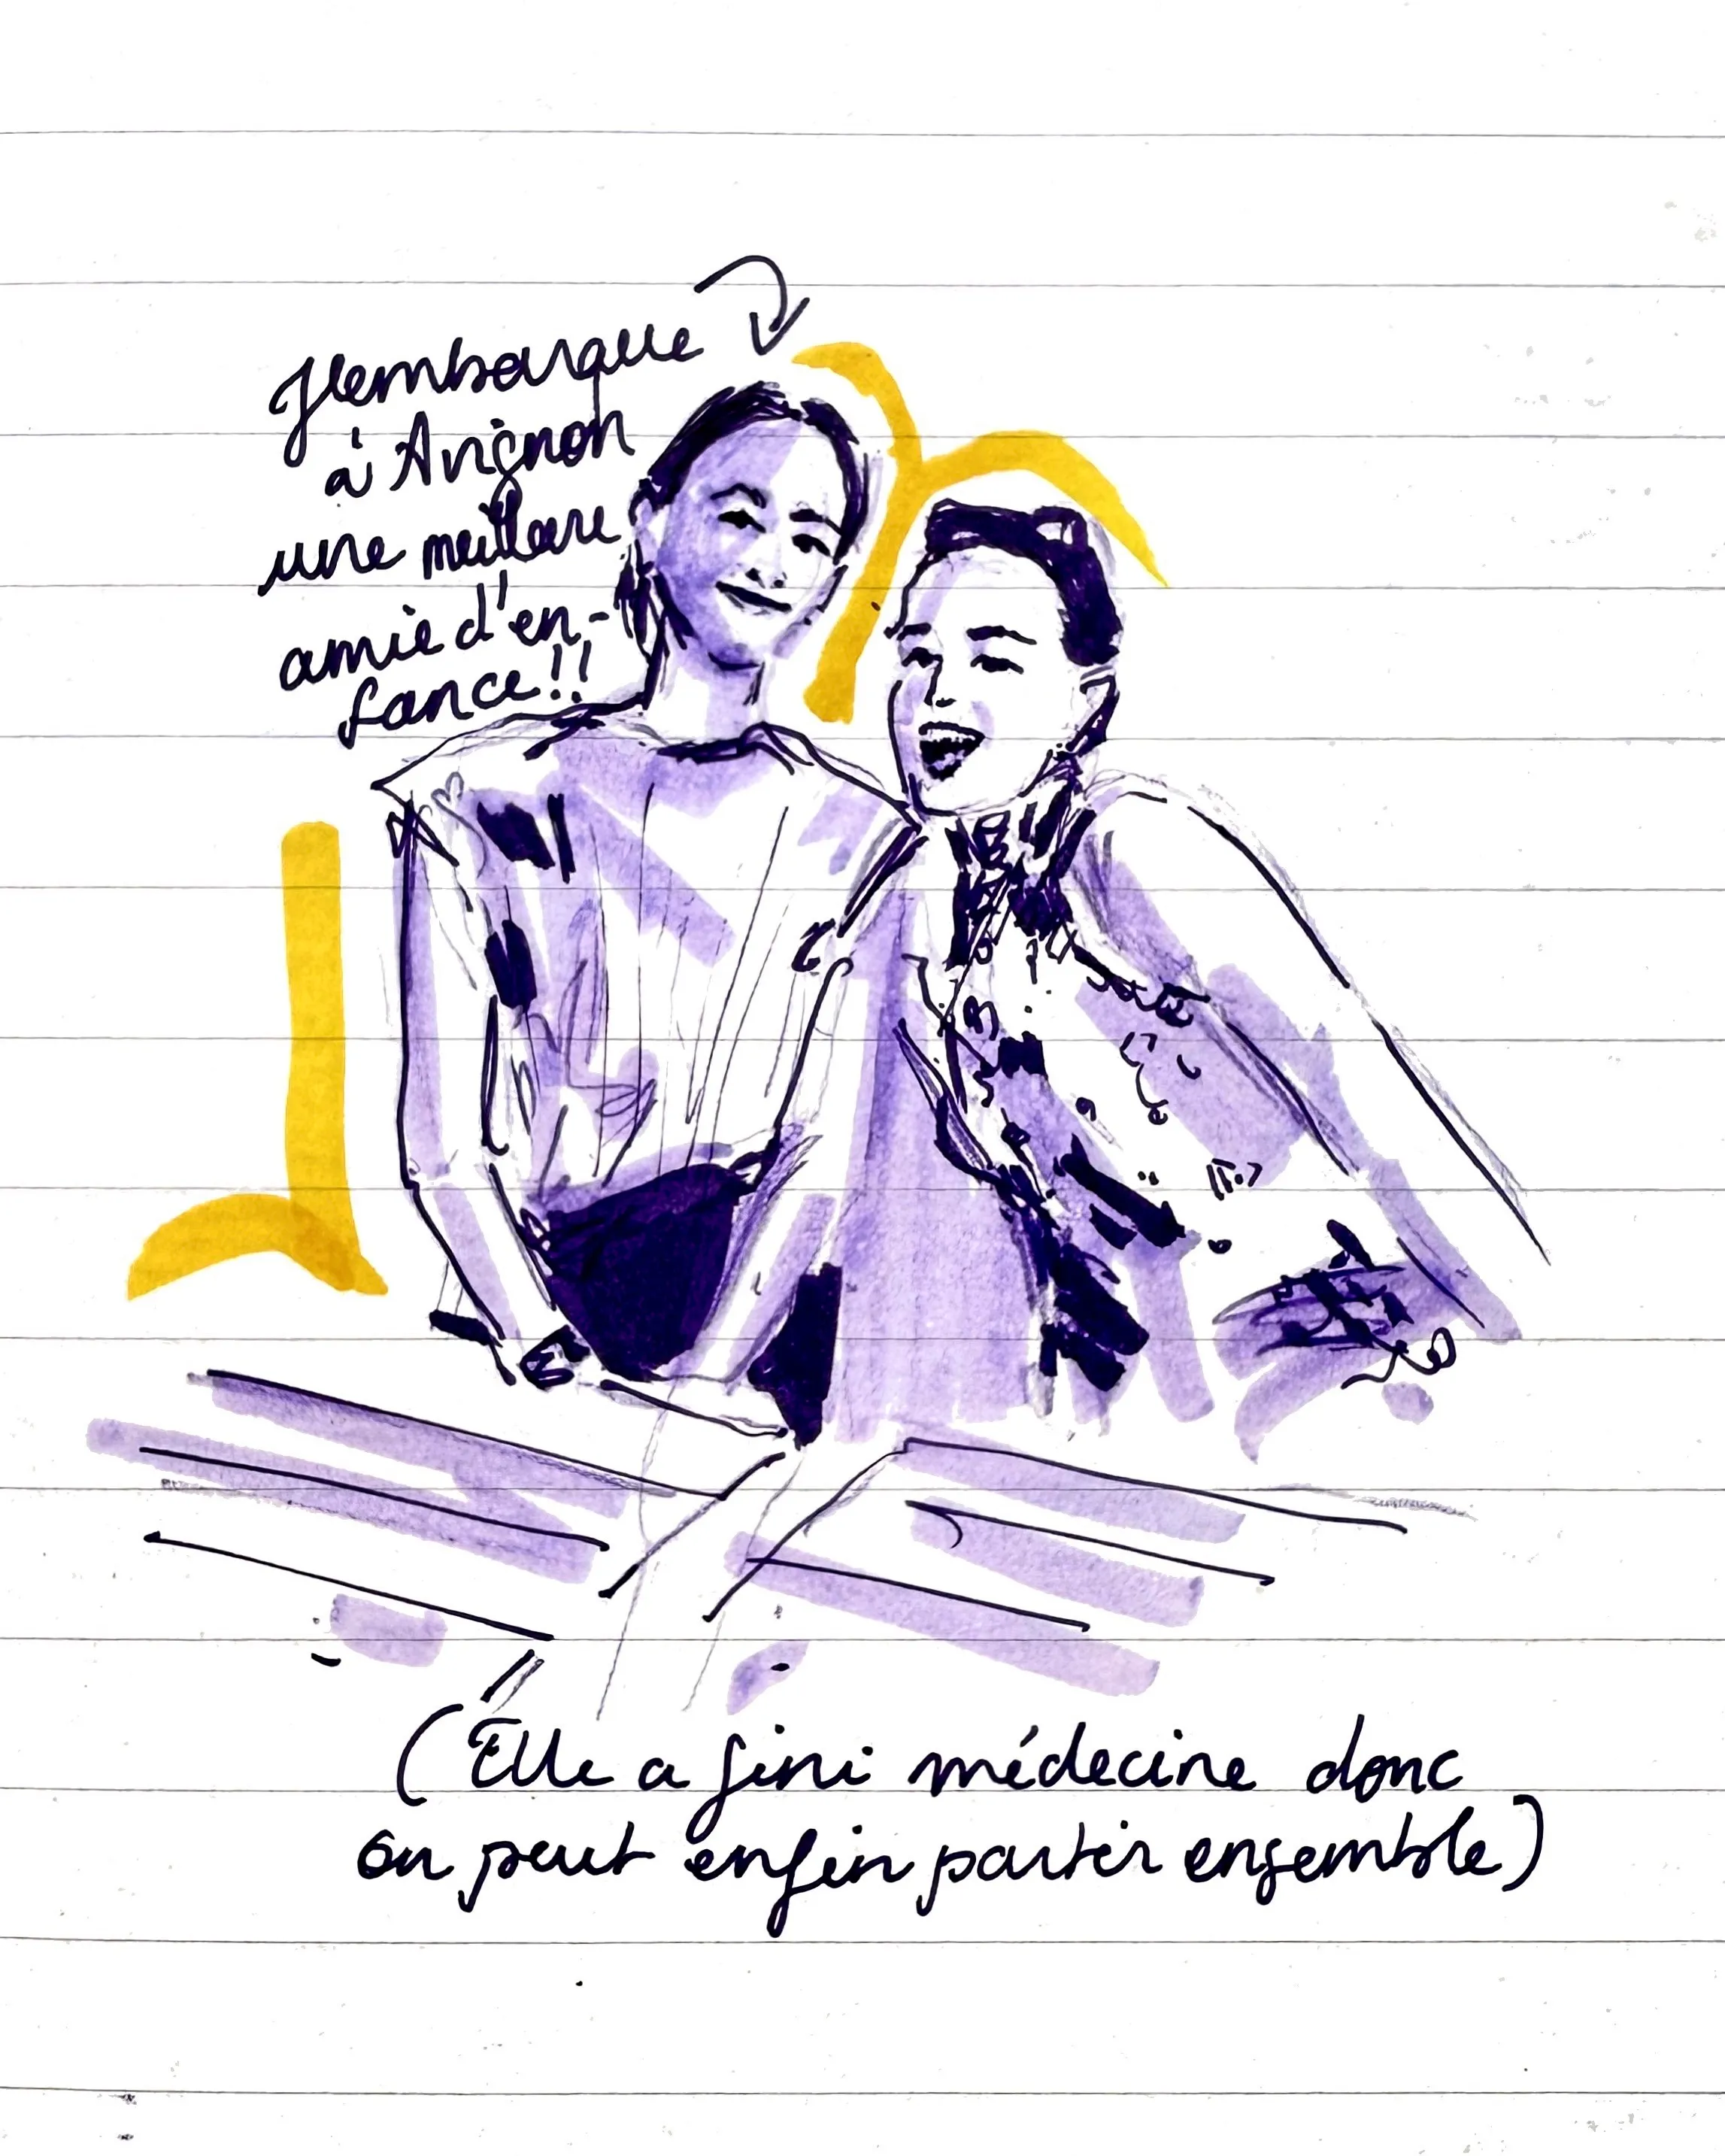 J'embarque
à Avignon
une meilleure
amie d'en-
fance!!
(Elle a fini médecine donc
on peut enfin partir ensemble)